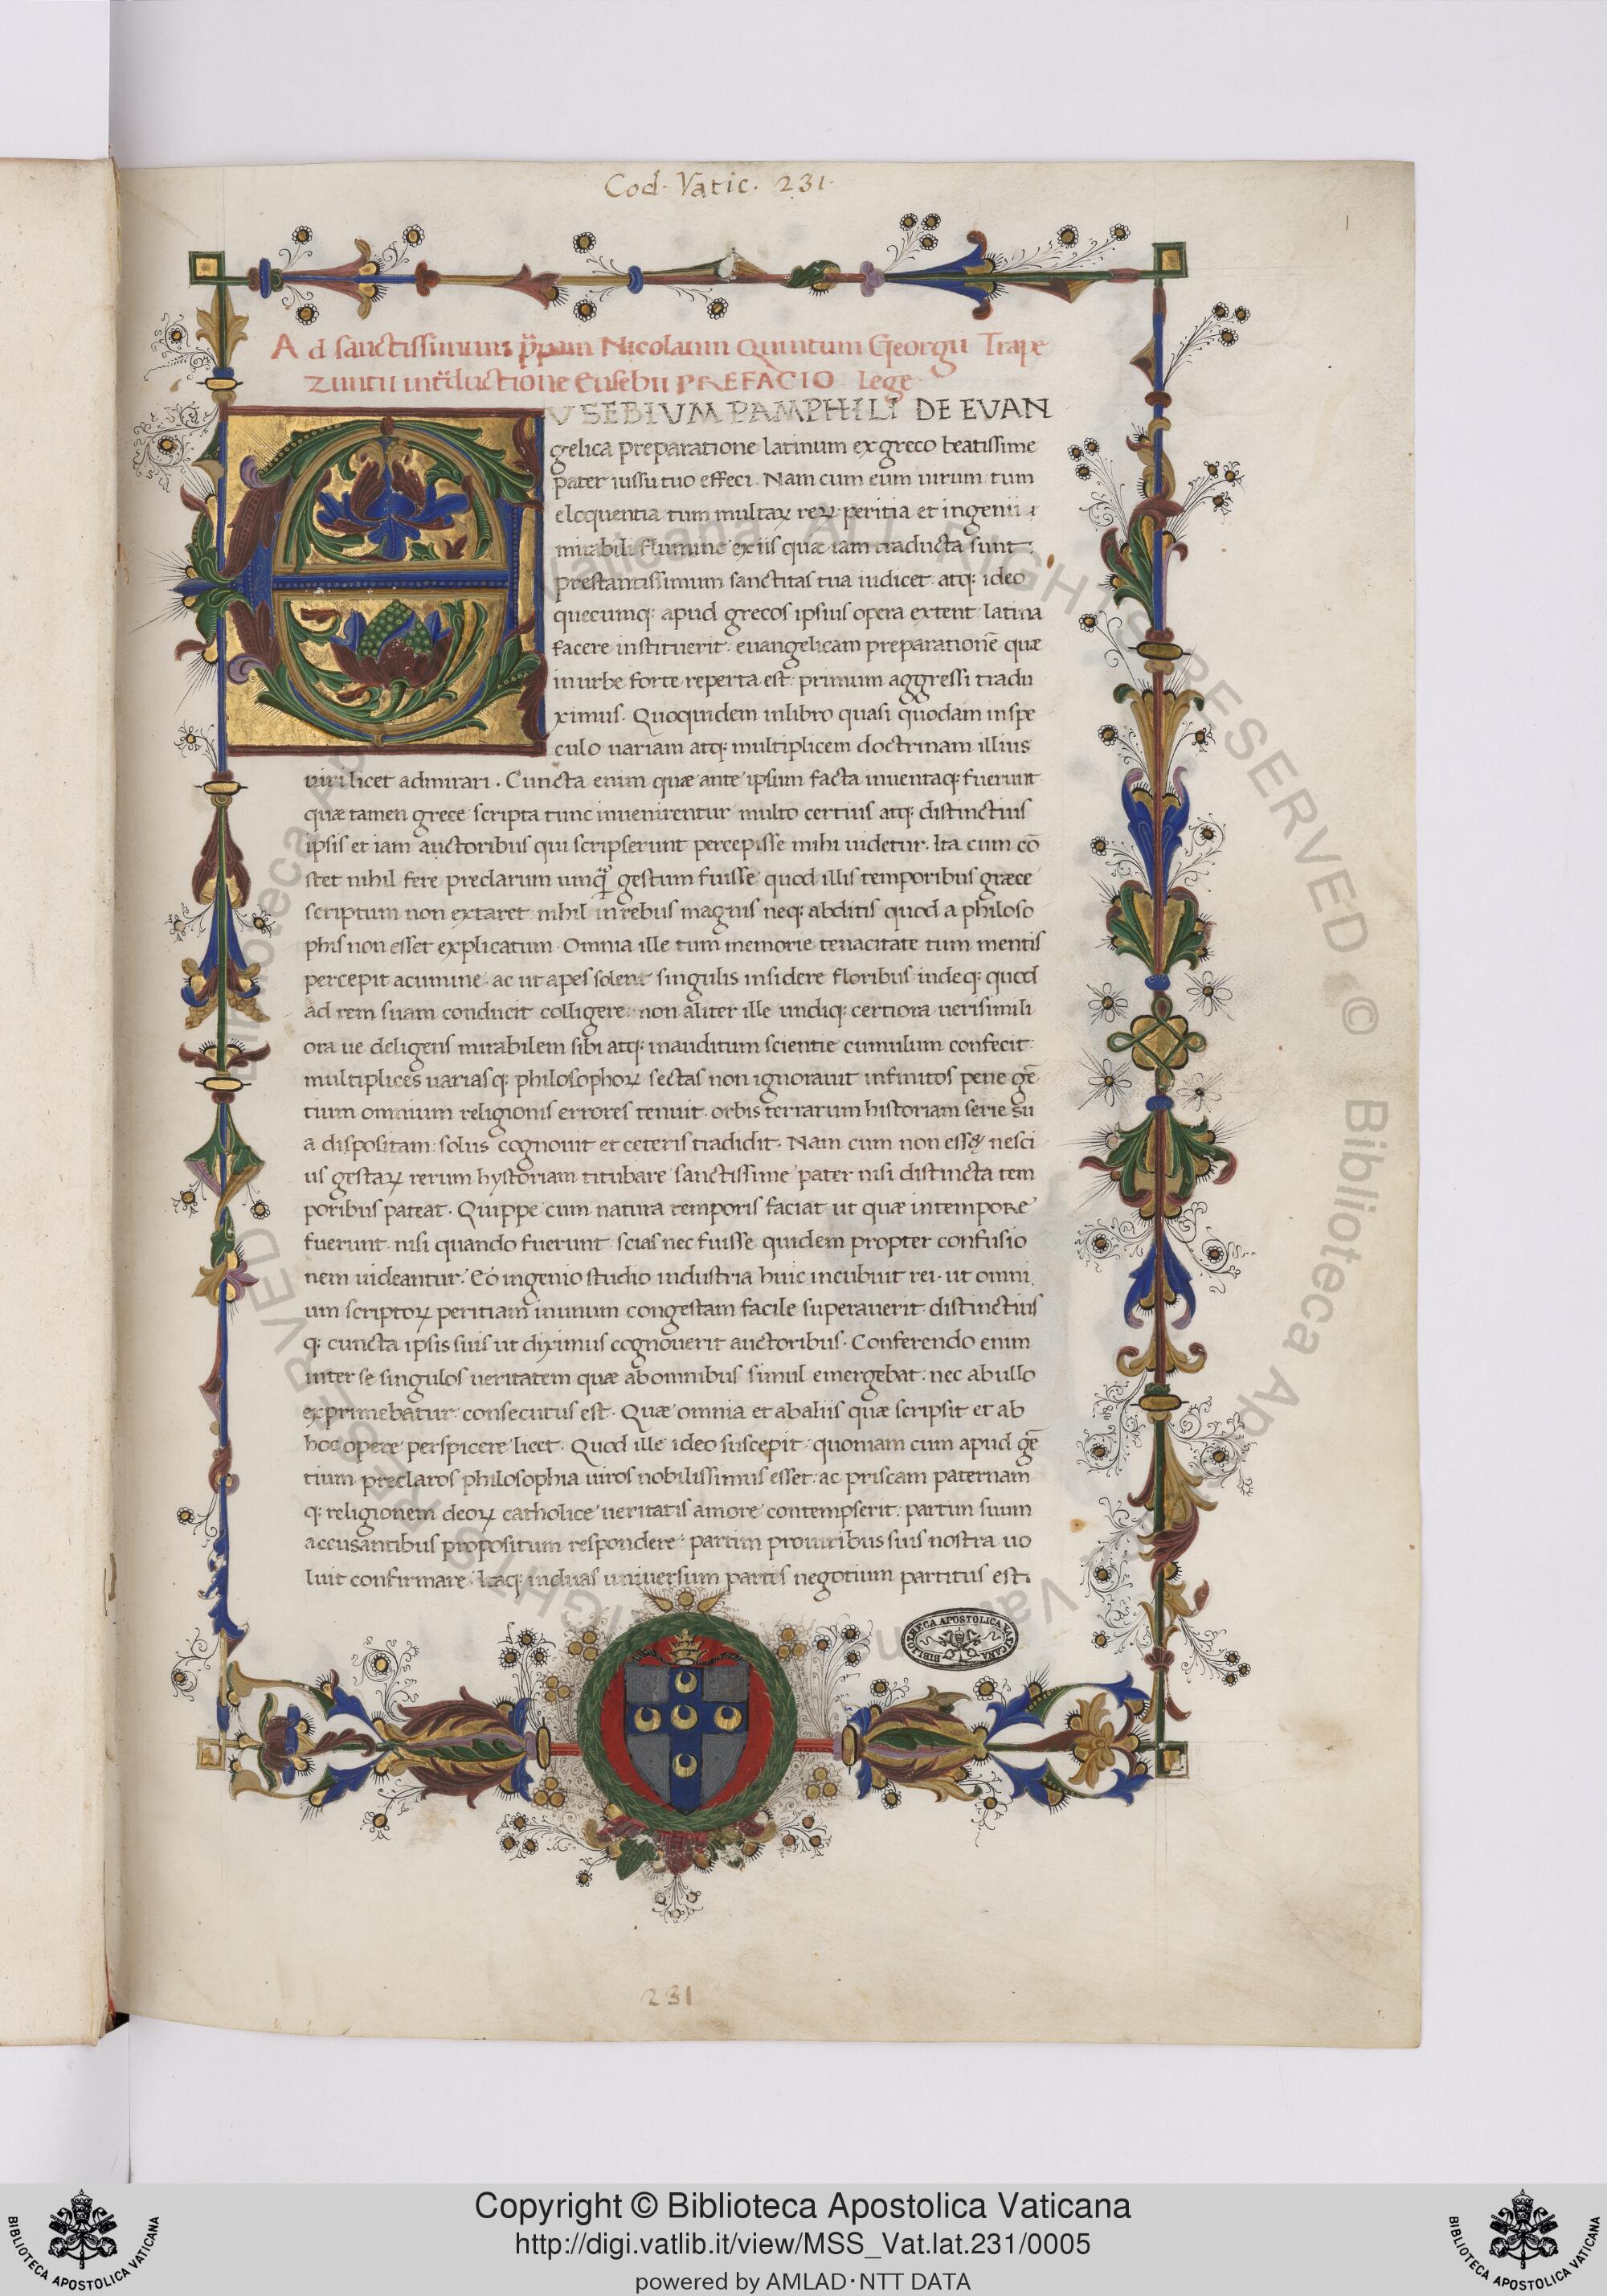 Cod. Vatic. 231.
1
Ad sanctissimum p̄pam Nicolaum Quintum Georgii Trape
zuntii in tr̄ductione Eusebii PREFACIO Lege
EUSEBIUM PAMPHILI DE EVAN
gelica preparatione latinum ex greco beatissime
pater iussu tuo effeci. Nam cum eum uirum tum
eloquentia tum multaꝝ reꝝ peritia et ingenii
mirabili flumine ex iis quæ iam traducta sunt:
prestantissimum sanctitas tua iudicet: atq; ideo
quecumq; apud grecos ipsius opera extent latina
facere instituerit: euangelicam preparationē quæ
in urbe forte reperta est: primum aggressi tradu
ximus. Quoquidem in libro quasi quodam in spe
culo uariam atq; multiplicem doctrinam illius
uiri licet admirari. Cuncta enim quæ ante ipsum facta inuentaq; fuerunt
quæ tamen grece scripta tunc inuenirentur multo certius atq; distinctius
ipsis et iam auctoribus qui scripserunt percepisse mihi uidetur. Ita cum cō
stet nihil fere preclarum umq̄ gestum fuisse quod illis temporibus græce
scriptum non extaret: nihil in rebus magnis neq; abditis quod a philoso
phis non esset explicatum. Omnia ille tum memorie tenacitate tum mentis
percepit acumine. ac ut apes solent singulis insidere floribus indeq; quod
ad rem suam conducit colligere: non aliter ille undiq; certiora uerisimili
ora ue deligens mirabilem sibi atq; inauditum scientie cumulum confecit:
multiplices uariasq; philosophoꝝ sectas non ignorauit infinitos pene gē
tium omnium religionis errores tenuit. orbis terrarum historiam serie su
a dispositam: solus cognouit et ceteris tradidit. Nam cum non ess& nesci
us gestaꝝ rerum hystoriam titubare sanctissime pater nisi distincta tem
poribus pateat. Quippe cum natura temporis faciat ut quæ in tempore
fuerunt nisi quando fuerunt scias nec fuisse quidem propter confusio
nem uideantur. Eo ingenio studio industria huic incubuit rei. ut omni
um scriptoꝝ peritiam in unum congestam facile superauerit distinctius
q; cuncta ipsis suis ut diximus cognouerit auctoribus. Conferendo enim
inter se singulos ueritatem quæ ab omnibus simul emergebat: nec ab ullo
exprimebatur consecutus est. Quæ omnia et ab aliis quæ scripsit et ab
hoc opere perspicere licet. Quod ille ideo suscepit: quoniam cum apud gē
tium preclaros philosophia uiros nobilissimus esset: ac priscam paternam
q; religionem deoꝝ catholice ueritatis amore contempserit: partim suum
accusantibus propositum respondere: partim pro uiribus suis nostra uo
luit confirmare. Itaq; in duas uniuersum partes negotium partitus est.
BIBLIOTHECA APOSTOLICA VATICANA
231
Biblioteca Apostolica Vaticana ALL RIGHTS RESERVED ©
Copyright © Biblioteca Apostolica Vaticana
http://digi.vatlib.it/view/MSS_Vat.lat.231/0005
powered by AMLAD·NTT DATA
BIBLIOTECA APOSTOLICA VATICANA
BIBLIOTECA APOSTOLICA VATICANA